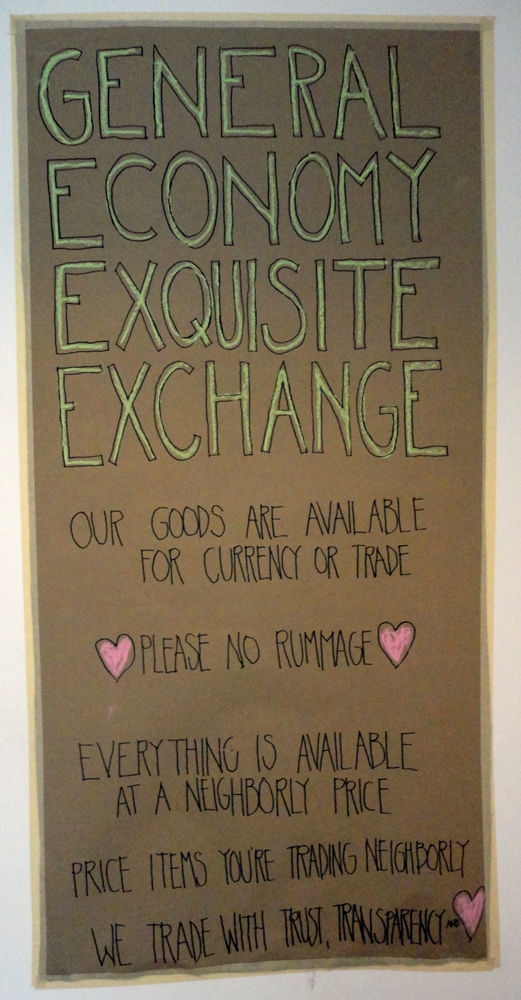 GENERAL
ECONOMY
EXQUISITE
EXCHANGE
OUR GOODS ARE AVAILABLE
FOR CURRENCY OR TRADE
PLEASE NO RUMMAGE
EVERYTHING IS AVAILABLE
AT A NEIGHBORLY PRICE
PRICE ITEMS YOU'RE TRADING NEIGHBORLY
WE TRADE WITH TRUST, TRANSPARENCY AND